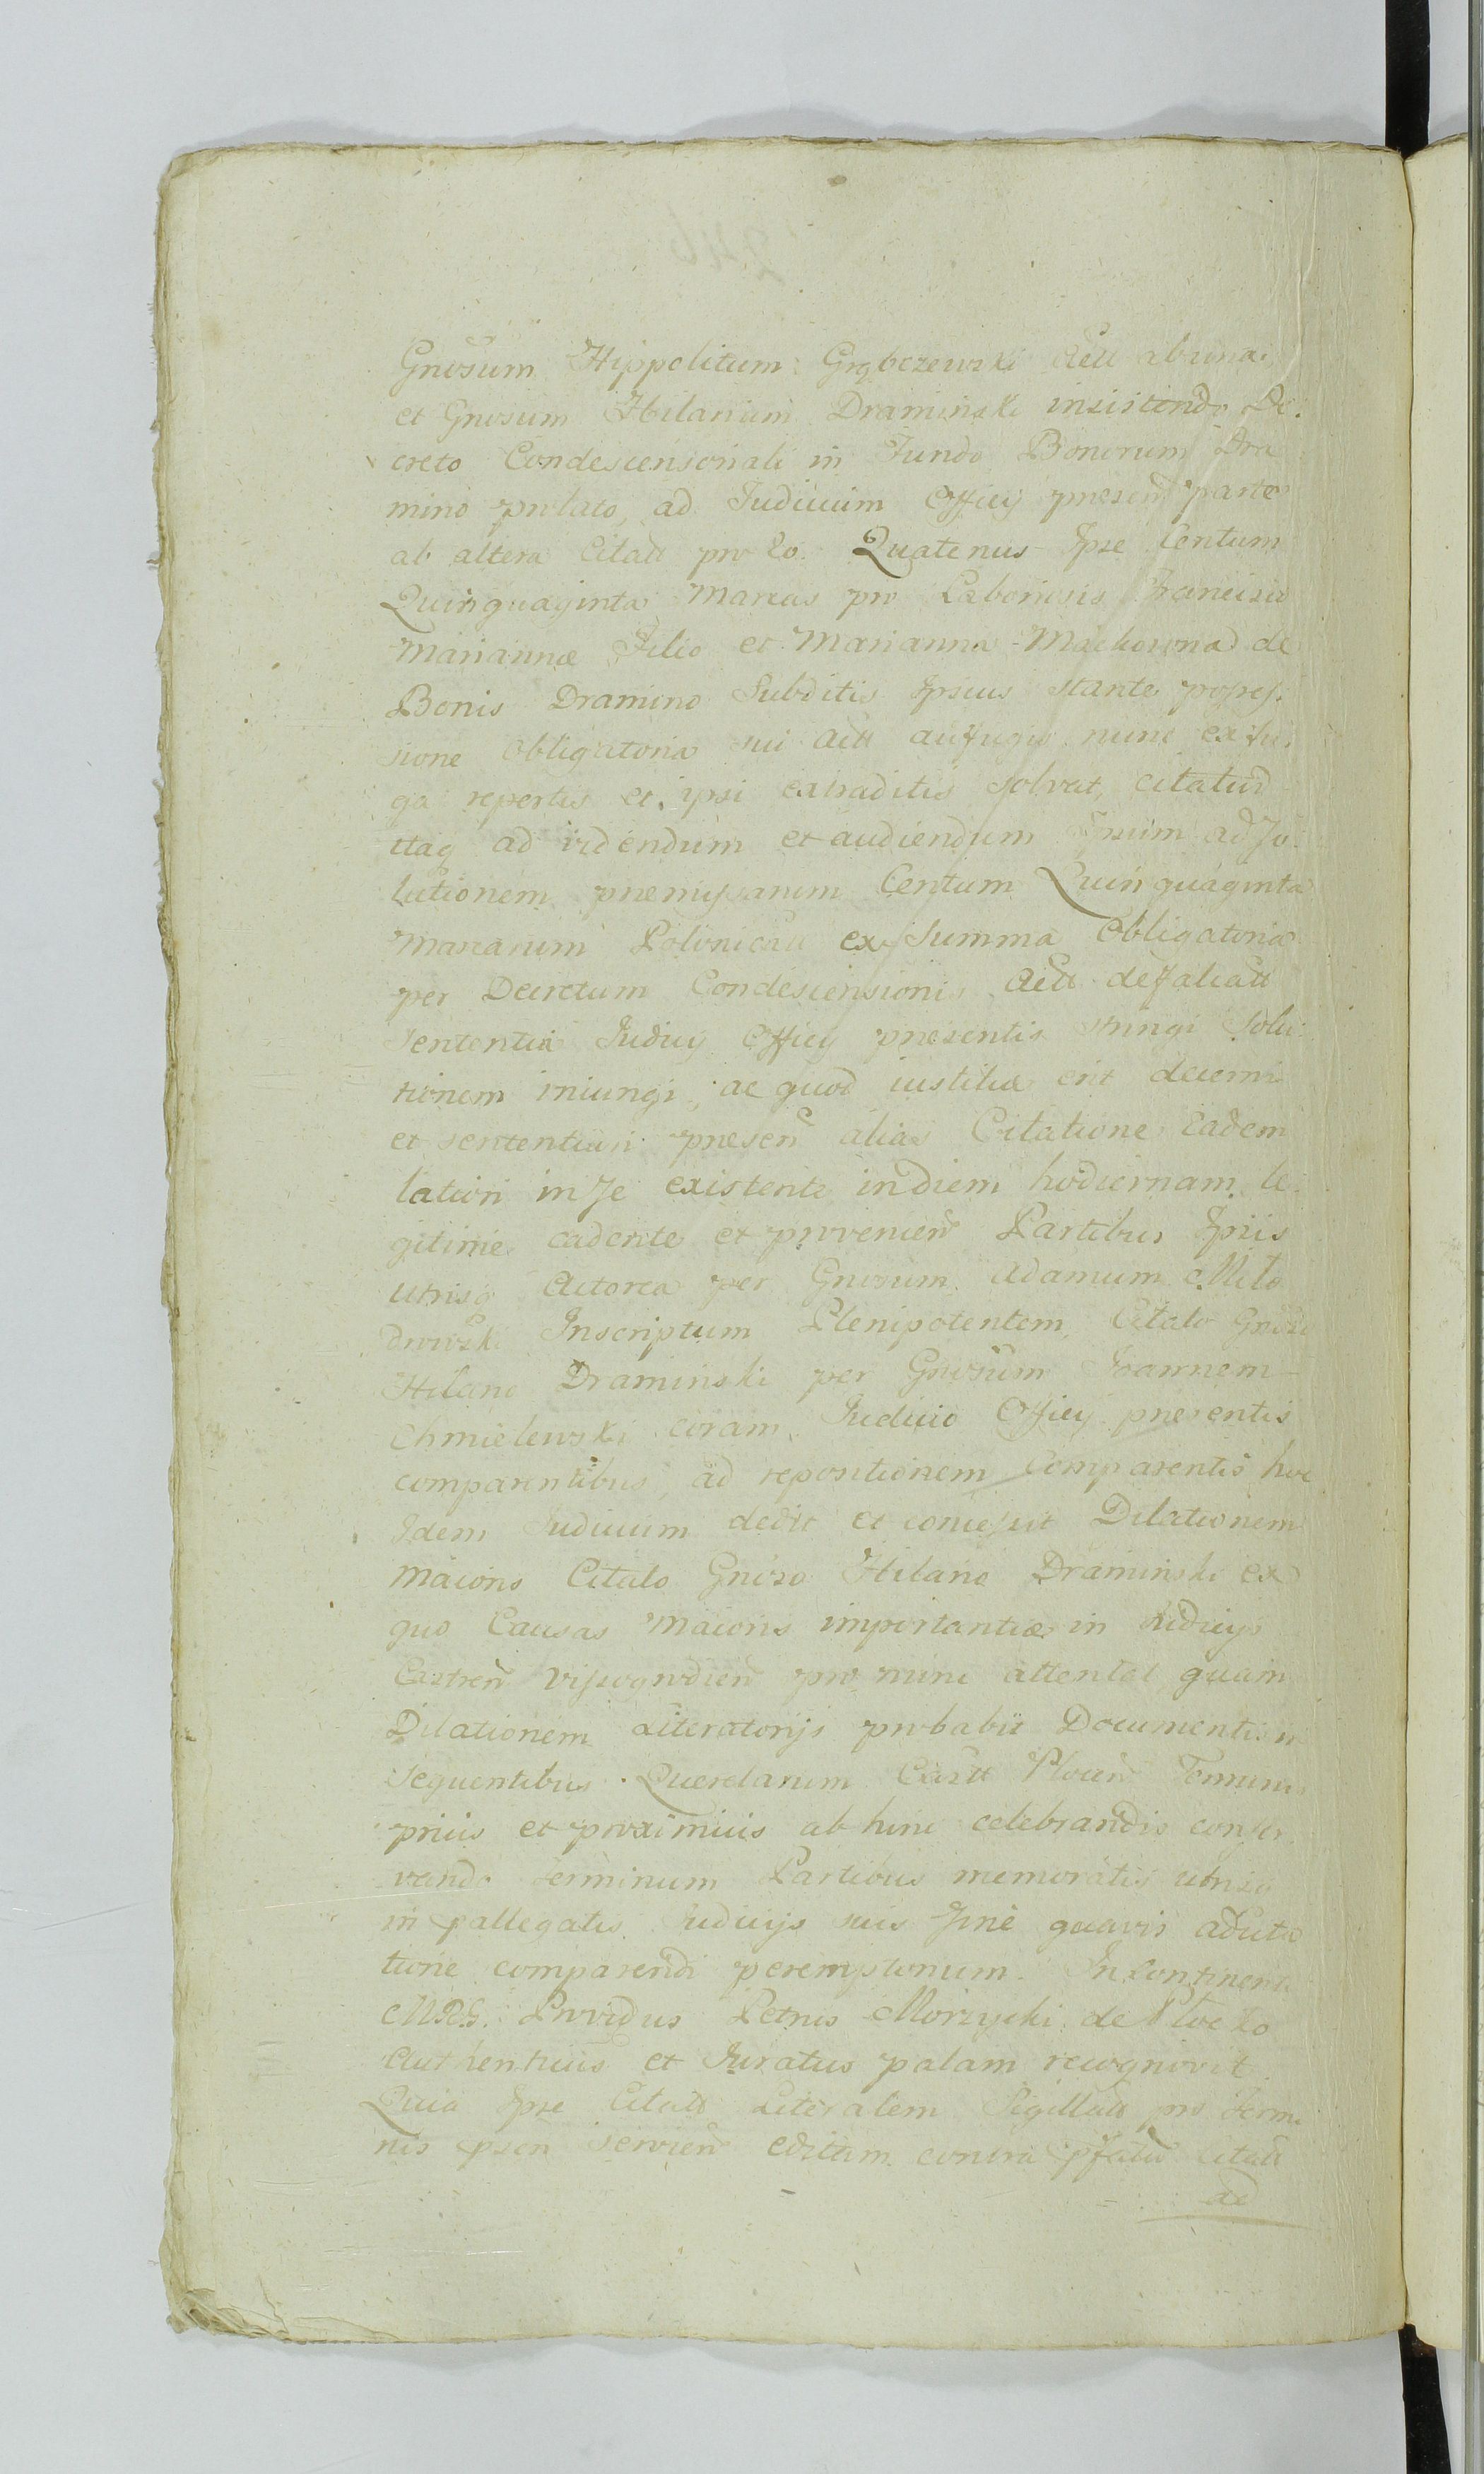 Gnosum Hippolitum Grąbczewski Actt ab una
et Gnosum Hilarium Dramiński insistendo De:
creto Condescensoriali in Fundo Bonorum Dra
mino prolato, ad Judicium Officij presen parte
ab altera Citatt pro eo. Quatenus Ipse Centum
Quinquaginta Marcas pro Laboriosis Francisco
Mariannæ Filio et Marianna Maćkowna de
Bonis Dramino Subditis Ipsius stante posses:
sione obligatoria sui Actt aufugis nunc ex fu
ga repertis et ipsi extraditis solvat, citatur
itaq ad videndum et audiendum Ipsum ad so:
lutionem premissarum Centum Quinquaginta
Marcarum Polonicatt ex Summa Obligatoria
per Decretum Condescensionis Actt defalcatt
Sententia Judicij Officij presentis stringi Solu:
tionem iniungi, ac quod iustitiæ erit decerni
et sententiari presen alias Citatione eadem
latiori in se existente in diem hodiernam le:
gitime cadente et provenien Partibus Ipsis
utrisq Actorea per Gnosum Adamum Miło
drowski Inscriptum Plenipotentem, Citato Gnoso
Hilario Dramiński per Gnosum Joannem
Chmielewski coram Judicio Officij presentis
comparentibus, ad repositionem Comparentis hoc
Idem Judicium dedit et concessit Dilationem
Maioris Citato Gnoso Hilario Dramiński ex
quo Causas maioris importantiæ in Judicijs
Castren Vissogrodien pro nunc attentet quam
Dilationem Literatorijs probabit Documentis in
Sequentibus Querelarum Castt Plocen Terminis
prius et proximius ab hinc celebrandis conser
vando terminum Partibus memoratis utrisq
in pallegatis Judicijs suis sine quavis adcita
tione comparendi peremptorium. In Continenti
MRS. Providus Petrus Morzycki de Płocko
Authenticus et Juratus palam recognovit
Quia Ipse Citatt Literalem Sigillatt pro Termi
nis psen servien editam contra pfatu citatt
ad